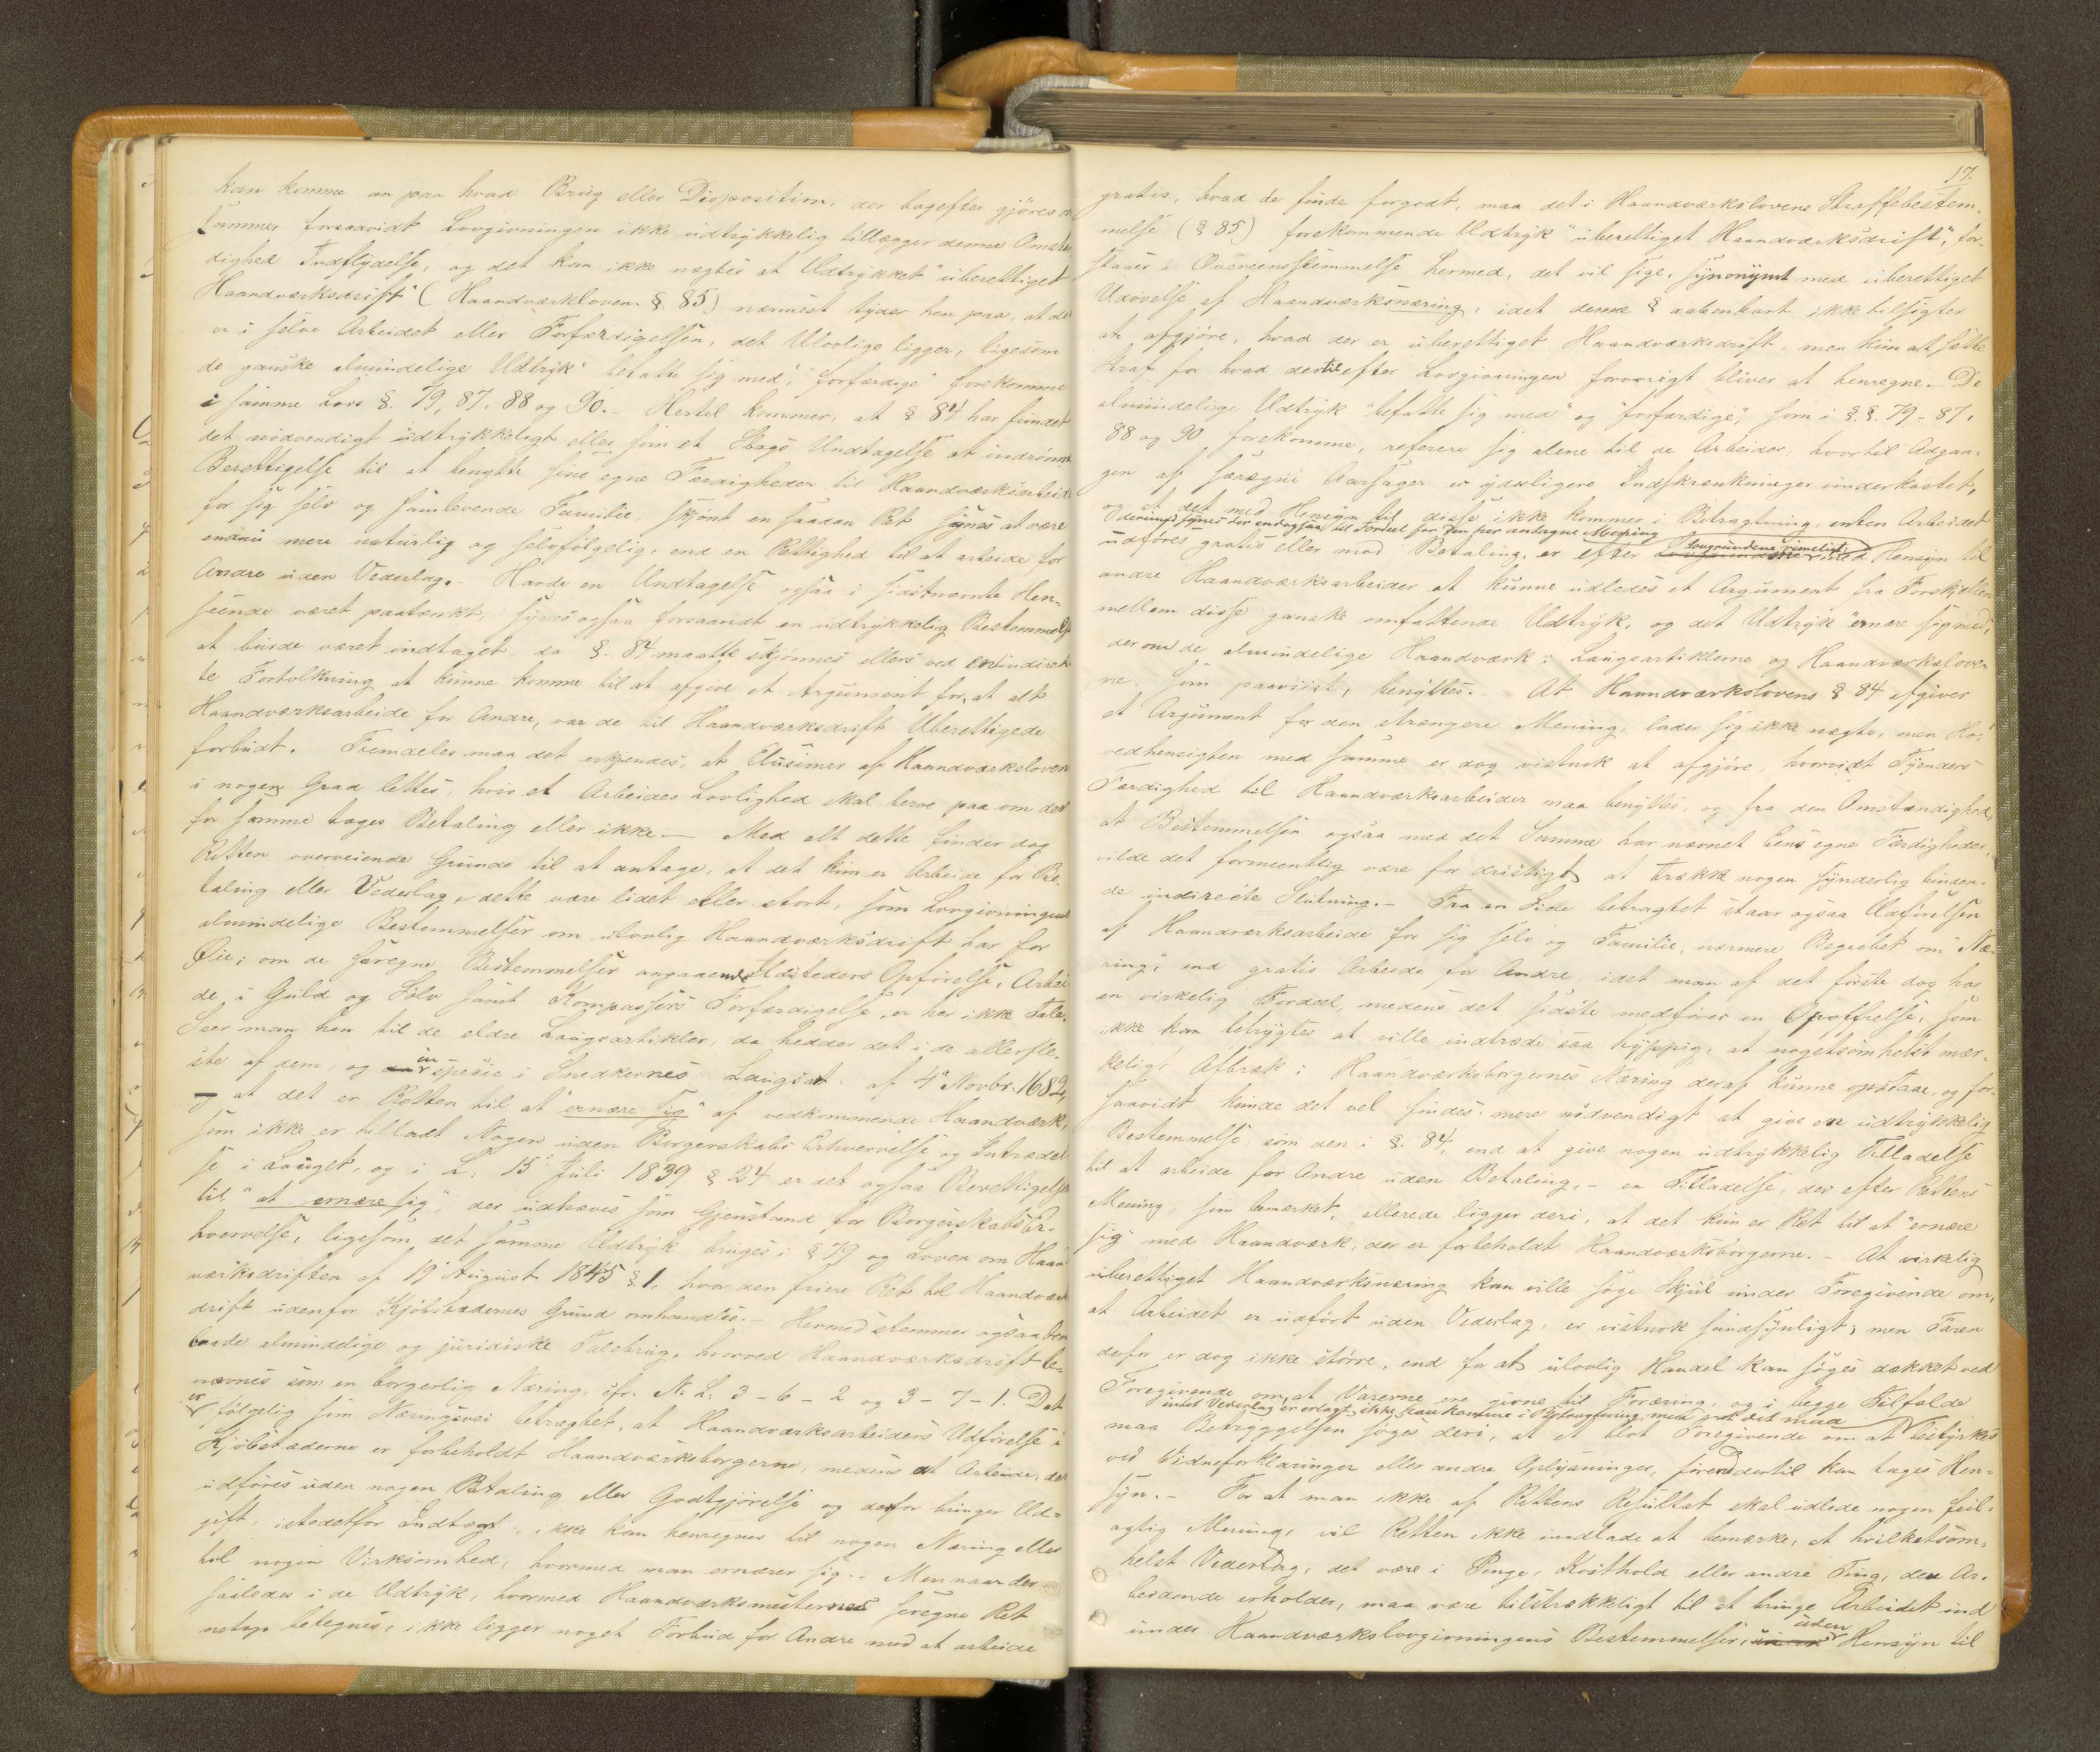 kan komme an paa hvad Brug eller Disposition, der bagefter gjöres
sammes forsaavidt Lovgivningen ikke udtrykkelig tillægger denne Omstæn
dighed Indflydelse, og det kan ikke nægtes at Udtrykket "uberettiget
Haandværksdrift" (Haandværkloven §. 85) nærmest tyder hen paa, at det
er i selve Arbeidet eller Forfærdigelsen, det Ulovlige ligger, ligesom
de ganske almindelige Udtryk "befatte sig med", "forfærdige" forekomme
i samme Lovs §. 79, 87, 88 og 90. – Hertil kommer, at § 84 har fundet
det nödvendigt udtrykkeligt eller som et Slags Undtagelse at indrömme
Berettigelse til at benytte sine egne Færdigheder til Haandværksarbeide
for sig selv og samlevende Familie, skjönt en saadan Ret synes at være
endnu mere naturlig og selvfölgelig, end en Rettighed til at arbeide for
Andre uden Vederlag. Havde en Undtagelse ogsaa i sidstnævnte Hen-
seende været paatænkt, synes ogsaa forsaavidt en udtrykkelig Bestemmelse
at burde været indtaget, da §. 84 maatte skjönnes ellers ved en indirek-
te Fortolkning at kunne komme til at afgive et Argument for, at alt
Haandværksarbeide for Andre, var de til Haandværksdrift Uberettigede
forbudt. Fremdeles maa det erkjendes, at Elusioner af Haandværksloven
i nogen Grad lettes, hvis et Arbeides Lovlighed skal bero paa om der
for samme tages Betaling eller ikke. – Med alt dette finder dog
Retten overveiende Grunde til at antage, at det kun er Arbeide for Be-
taling eller Vederlag, dette være lidet eller stort, som Lovgivningens
almindelige Bestemmelser om ulovlig Haandværksdrift har for
Öie; om de særegne Bestemmelser angaaende Ildsteders Opförelse, Arbei
de i Guld og Sölv samt Kompassers Forfærdigelse, er her ikke Tale.
Seer man hen til de eldre Laugsartikler, da hedder det i de allerfle-
ste af dem, og in specie i Snedkernes Laugsart. af 4de Novbr. 1682,
at det er Retten til at "ernære sig" af vedkommende Haandværk,
som ikke er tilladt Nogen uden Borgerskabs Erhvervelse og Indtrædel
se i Lauget, og i L: 15de Juli 1839 § 24 er det ogsaa Berettigelse
til "at ernære sig", der udhæves som Gjenstand for Borgerskabs Er-
hvervelse, ligesom det samme Udtryk bruges i § 79 og Loven om Haand
værksdriften af 19de August 1845 § 1, hvor den friere Ret til Haandværks
drift udenfor Kjöbstædernes Grund omhandles. – Hermed stemmer ogsaa den
baade almindelige og juridiske Talebrug, hvorved Haandværksdrift be-
nævnes som en borgerlig Næring, cfr. N. L. 3 – 6 – 2 og 3 – 7 – 1. Det
er fölgelig som Næringsvei betragtet, at Haandværksarbeiders Udförelse i
Kjöbstæderne er forbeholdt Haandværksborgerne, medens at Arbeide, der
udföres uden nogen Betaling eller Godtgjörelse og derfor bringer Ud-
gift, istedetfor Indtægt, ikke kan henregnes til nogen Næring eller
til nogen Virksomhed, hvormed man ernærer sig. – Men naar der
saaledes i de Udtryk, hvormed Haandværksmesternes særegne Ret
netop betegnes, ikke ligger noget Forbud for Andre mod at arbeide
17.
gratis, hvad de finde forgodt, maa det i Haandværkslovens Straffebestem-
melse (§ 85) forekommende Udtryk "uberettiget Haandværksdrift", for-
staaes i Overeensstemmelse hermed, det vil sige, synonymt med uberettiget
Udövelse af Haandværksnæring, idet denne § aabenbart ikke tilsigter
at afgjöre, hvad der er uberettiget Haandværksdrift, men kun at sætte
Straf for hvad dertil efter Lovgivningen forövrigt bliver at henregne. – De
almindelige Udtryk "befatte sig med" og "forfærdige", som i §.§. 79 - 87,
88 og 90 forekomme, referere sig alene til de Arbeider, hvortil Adgan-
gen af særegne Aarsager er yderligere Indskrænkninger underkastet,
og at det med Hensyn til disse ikke kommer i Betragtning, enten Arbeidet
derimod synes der endogsaa til Fordeel for den her antagne Mening
udföres gratis eller mod Betaling, er efter Lovgrundene rimeligt; med Hensyn til
andre Haandværksarbeider at kunne udledes et Argument fra Forskjellen
mellem disse ganske omfattende Udtryk, og det Udtryk "ernære sig med",
der om de almindelige Haandværk i Laugsartiklerne og Haandværkslove-
ne, som paaviist, benyttes. – At Haandværkslovens § 84 afgiver
et Argument for den strængere Mening, lader sig ikke nægte, men Ho-
vedhensigten med samme er dog vistnok at afgjöre, hvorvidt Tjenders
Færdighed til Haandværksarbeider maa benyttes, og fra den Omstændighed,
at Bestemmelsen ogsaa med det Samme har nævnet Eens egne Færdigheder,
vilde det formeentlig være for dristigt at trække nogen synderlig binden-
de indirecte Slutning. – Fra en Side betragtet staar ogsaa Udförelsen
af Haandværksarbeide for sig selv og Familie, nærmere Begrebet om "Næ-
ring", end gratis Arbeide for Andre idet man af det förste dog har
en virkelig Fordeel, medens det sidste medförer en Opoffrelse, som
ikke kan betrygtes at ville indtræde saa hyppig, at nogetsomhelst mær-
keligt Afbræk i Haandværksborgernes Næring deraf kunne opstaae, og for-
saavidt kunde det vel findes mere nödvendigt at give en udtrykkelig
Bestemmelse, som den i §. 84, end at give nogen udtrykkelig Tilladelse
til at arbeide for Andre uden Betaling, – en Tilladelse, der efter Rettens
Mening, som bemærket, allerede ligger deri, at det kun er Ret til at "ernære
sig" med Haandværk, der er forbeholdt Haandværksborgerne. – At virkelig
uberettiget Haandværksnæring kan ville söge Skjul under Foregivende om,
at Arbeidet er udfört uden Vederlag, er vistnok sandsynligt; men Faren
derfor er dog ikke större, end for at ulovlig Handel kan söges dækket ved
Foregivende om, at Varerne ere givne til Foræring, og i begge Tilfælde
intet Vederlag er erlagt, ikke kan komme i Betragtning, med at det maa
maa Betryggelsen söges deri, at et blot Foregivende om at bestyrkes
ved Vidneforklaringer eller andre Oplysninger, förend dertil kan tages Hen-
syn. – For at man ikke af Rettens Resultat skal udlede nogen feil-
agtig Mening, vil Retten ikke undlade at bemærke, at hvilketsom-
helst Vederlag, det være i Penge, Kosthold eller andre Ting, den Ar-
beidende erholder, maa være tilstrækkeligt til at bringe Arbeidet ind
under Haandværkslovgivningens Bestemmelser, uden Hensyn til